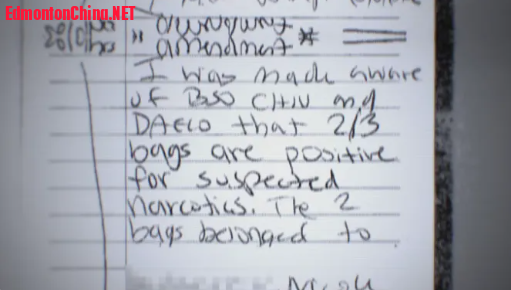 EdmontonChina.NET
amendment
I was made aware
of BSO CHIU and
DAECO that 2/3
bags are positive
for suspected
narcotics. The 2
bags belonged to